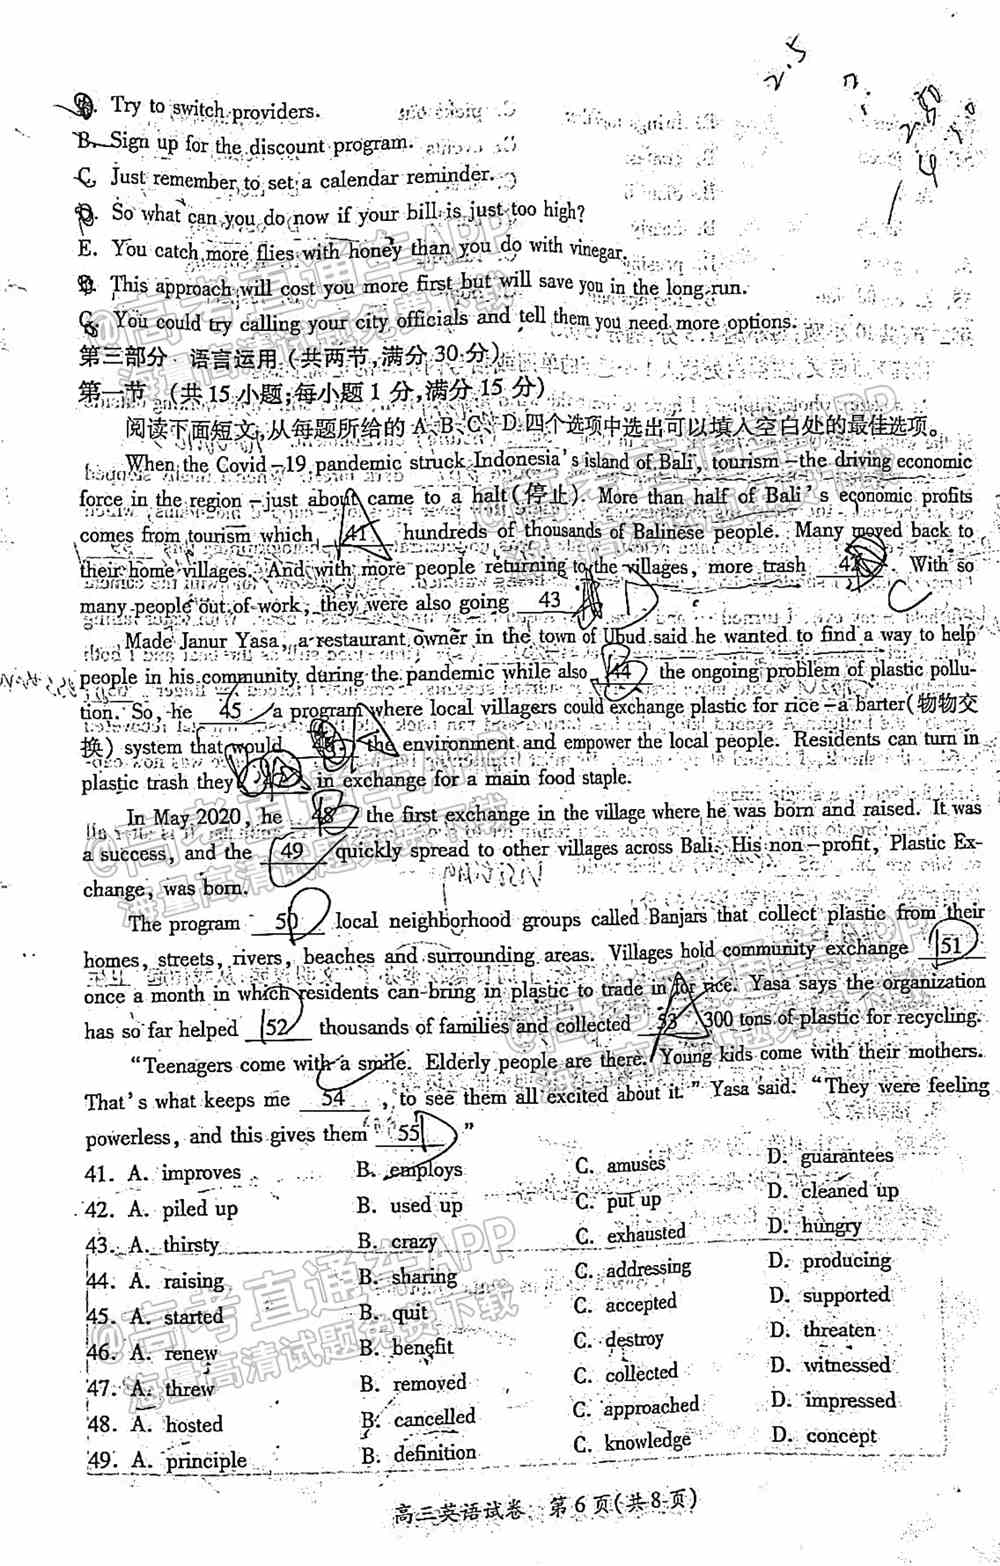 A. Try to switch providers.
B. Sign up for the discount program.
C. Just remember to set a calendar reminder.
D. So what can you do now if your bill is just too high?
E. You catch more flies with honey than you do with vinegar.
This approach will cost you more first but will save you in the long run.
G. You could try calling your city officials and tell them you need more options.
第三部分 语言运用(共两节,满分30分)
第一节 (共15小题;每小题1分,满分15分)
阅读下面短文,从每题所给的A、B、C、D四个选项中选出可以填入空白处的最佳选项。
When the Covid-19 pandemic struck Indonesia's island of Bali, tourism-the driving economic
force in the region-just about came to a halt(停止). More than half of Bali's economic profits
comes from tourism which 41 hundreds of thousands of Balinese people. Many moved back to
their home villages. And with more people returning to the villages, more trash 42. With so
many people out of work, they were also going 43.
Made Janur Yasa, a restaurant owner in the town of Ubud said he wanted to find a way to help
people in his community during the pandemic while also 44 the ongoing problem of plastic pollu-
tion. So, he 45 a program where local villagers could exchange plastic for rice-a barter(物物交
换) system that would 46 the environment and empower the local people. Residents can turn in
plastic trash they 47 in exchange for a main food staple.
In May 2020, he 48 the first exchange in the village where he was born and raised. It was
a success, and the 49 quickly spread to other villages across Bali. His non-profit, Plastic Ex-
change, was born.
The program 50 local neighborhood groups called Banjars that collect plastic from their
homes, streets, rivers, beaches and surrounding areas. Villages hold community exchange 51
once a month in which residents can bring in plastic to trade in for rice. Yasa says the organization
has so far helped 52 thousands of families and collected 53 300 tons of plastic for recycling.
"Teenagers come with a smile. Elderly people are there. Young kids come with their mothers.
That's what keeps me 54, to see them all excited about it." Yasa said. "They were feeling
powerless, and this gives them 55"
41. A. improves B. employs C. amuses D. guarantees
42. A. piled up B. used up C. put up D. cleaned up
43. A. thirsty B. crazy C. exhausted D. hungry
44. A. raising B. sharing C. addressing D. producing
45. A. started B. quit C. accepted D. supported
46. A. renew B. benefit C. destroy D. threaten
47. A. threw B. removed C. collected D. witnessed
48. A. hosted B. cancelled C. approached D. impressed
49. A. principle B. definition C. knowledge D. concept
高三英语试卷 第6页(共8页)
@高考直通车APP
海量高清试题免费下载